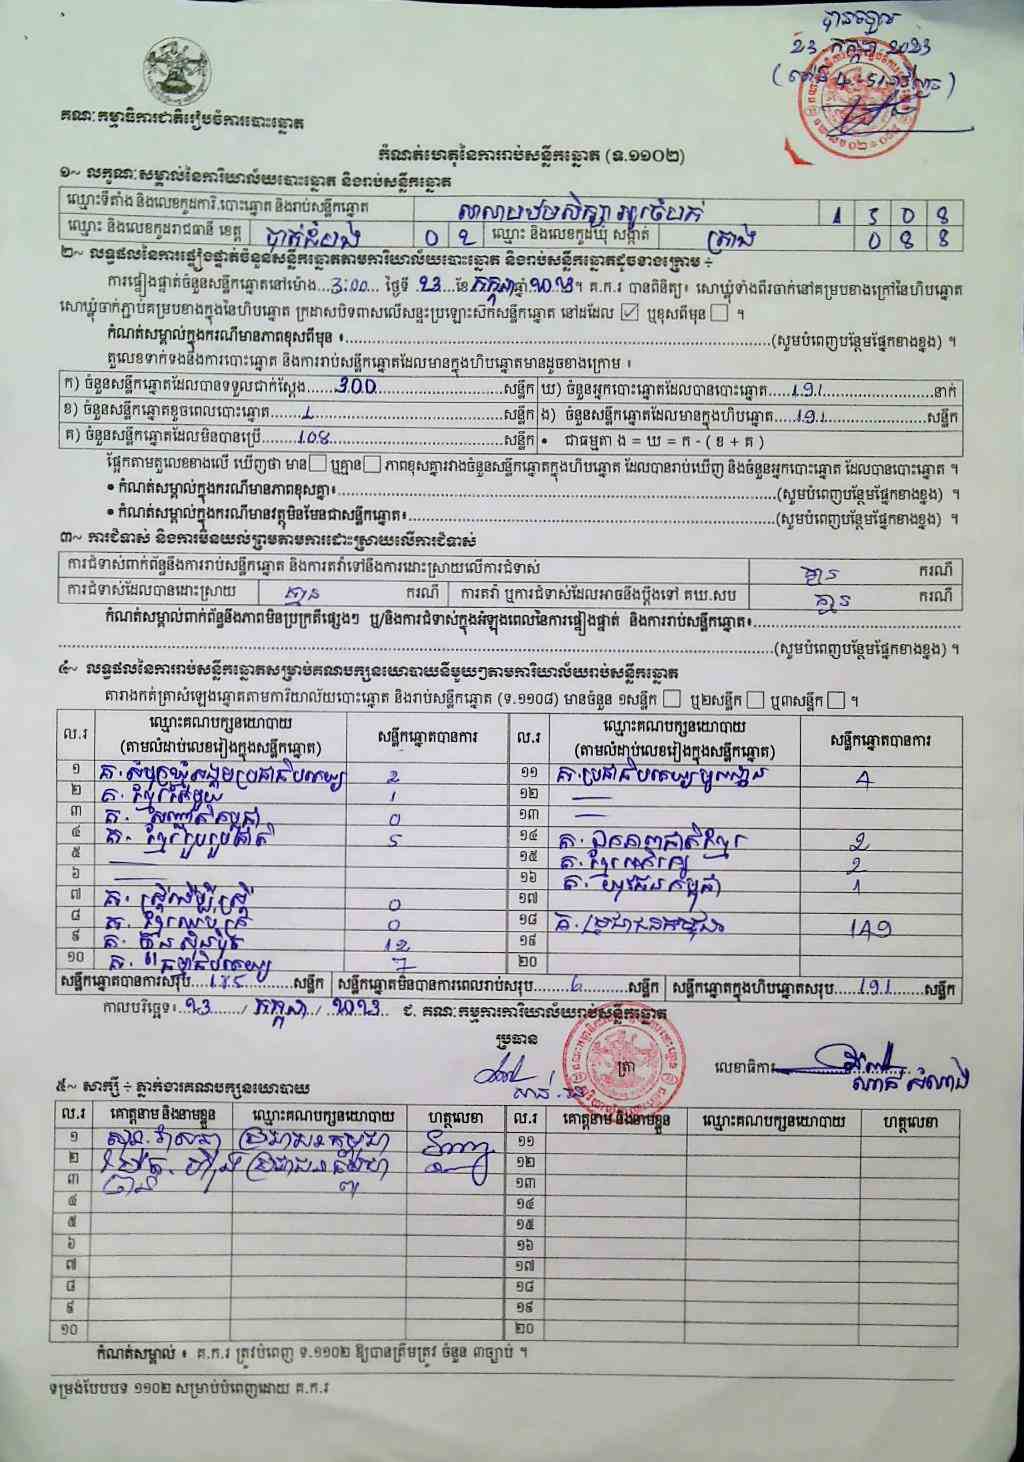 បានឃើញ
23 កក្កដា 2023
គណៈកម្មាធិការជាតិរៀបចំការបោះឆ្នោត
កំណត់ហេតុនៃការរាប់សន្លឹកឆ្នោត (ទ.១១០២)
១~ លក្ខណៈសម្គាល់នៃការិយាល័យបោះឆ្នោត និងរាប់សន្លឹកឆ្នោត
ឈ្មោះទីតាំង និងលេខកូដការិ.បោះឆ្នោត និងរាប់សន្លឹកឆ្នោត សាលាបឋមសិក្សា អូរចំបក់ 1 5 0 8
ឈ្មោះ និងលេខកូដរាជធានី ខេត្ត បាត់ដំបង 0 2 ឈ្មោះ និងលេខកូដឃុំ សង្កាត់ ត្រាង 0 8 8
២~ លទ្ធផលនៃការផ្ទៀងផ្ទាត់ចំនួនសន្លឹកឆ្នោតតាមការិយាល័យបោះឆ្នោត និងរាប់សន្លឹកឆ្នោតដូចខាងក្រោម ÷
ការផ្ទៀងផ្ទាត់ចំនួនសន្លឹកឆ្នោតនៅម៉ោង...3:00... ថ្ងៃទី .23...ខែ.កក្កដា.ឆ្នាំ.2023។ គ.ក.រ បានពិនិត្យ៖ សោឃ្លុំទាំងពីរចាក់នៅគម្របខាងក្រៅនៃហិបឆ្នោត
សោឃ្លុំចាក់ភ្ជាប់គម្របខាងក្នុងនៃហិបឆ្នោត ក្រដាសបិទពាសលើសន្ទះប្រឡោះសឹកសន្លឹកឆ្នោត នៅដដែល ☑ ឬខុសពីមុន ☐ ។
កំណត់សម្គាល់ក្នុងករណីមានភាពខុសពីមុន ៖.....(សូមបំពេញបន្ថែមផ្នែកខាងខ្នង) ។
តួលេខទាក់ទងនឹងការបោះឆ្នោត និងការរាប់សន្លឹកឆ្នោតដែលមានក្នុងហិបឆ្នោតមានដូចខាងក្រោម ៖
ក) ចំនួនសន្លឹកឆ្នោតដែលបានទទួលជាក់ស្តែង......300......សន្លឹក ឃ) ចំនួនអ្នកបោះឆ្នោតដែលបានបោះឆ្នោត....191......នាក់
ខ) ចំនួនសន្លឹកឆ្នោតខូចពេលបោះឆ្នោត......1......សន្លឹក ង) ចំនួនសន្លឹកឆ្នោតដែលមានក្នុងហិបឆ្នោត....191......សន្លឹក
គ) ចំនួនសន្លឹកឆ្នោតដែលមិនបានប្រើ......108......សន្លឹក • ជាធម្មតា ង = ឃ = ក - ( ខ + គ )
ផ្អែកតាមតួលេខខាងលើ ឃើញថា មាន☐ ឬគ្មាន☐ ភាពខុសគ្នារវាងចំនួនសន្លឹកឆ្នោតក្នុងហិបឆ្នោត ដែលបានរាប់ឃើញ និងចំនួនអ្នកបោះឆ្នោត ដែលបានបោះឆ្នោត ។
• កំណត់សម្គាល់ក្នុងករណីមានភាពខុសគ្នា៖.....(សូមបំពេញបន្ថែមផ្នែកខាងខ្នង) ។
• កំណត់សម្គាល់ក្នុងករណីមានវត្ថុមិនមែនជាសន្លឹកឆ្នោត៖.....(សូមបំពេញបន្ថែមផ្នែកខាងខ្នង) ។
៣~ ការជំទាស់ និងការមិនយល់ព្រមតាមការដោះស្រាយលើការជំទាស់
ការជំទាស់ពាក់ព័ន្ធនឹងការរាប់សន្លឹកឆ្នោត និងការតវ៉ាទៅនឹងការដោះស្រាយលើការជំទាស់ គ្មាន ករណី
ការជំទាស់ដែលបានដោះស្រាយ គ្មាន ករណី ការតវ៉ា ឬការជំទាស់ដែលអាចនឹងប្តឹងទៅ គឃ.សប គ្មាន ករណី
កំណត់សម្គាល់ពាក់ព័ន្ធនឹងភាពមិនប្រក្រតីផ្សេងៗ ឬ/និងការជំទាស់ក្នុងអំឡុងពេលនៃការផ្ទៀងផ្ទាត់ និងការរាប់សន្លឹកឆ្នោត៖.....
.....(សូមបំពេញបន្ថែមផ្នែកខាងខ្នង) ។
៤~ លទ្ធផលនៃការរាប់សន្លឹកឆ្នោតសម្រាប់គណបក្សនយោបាយនីមួយៗតាមការិយាល័យរាប់សន្លឹកឆ្នោត
តារាងកត់ត្រាសំឡេងឆ្នោតតាមការិយាល័យបោះឆ្នោត និងរាប់សន្លឹកឆ្នោត (ទ.១១០៨) មានចំនួន ១សន្លឹក ☐ ឬ២សន្លឹក ☐ ឬ៣សន្លឹក ☐ ។
ល.រ ឈ្មោះគណបក្សនយោបាយ (តាមលំដាប់លេខរៀងក្នុងសន្លឹកឆ្នោត) សន្លឹកឆ្នោតបានការ ល.រ ឈ្មោះគណបក្សនយោបាយ (តាមលំដាប់លេខរៀងក្នុងសន្លឹកឆ្នោត) សន្លឹកឆ្នោតបានការ
១ គ. សំបុកឃ្មុំសង្គមប្រជាធិបតេយ្យ 2 ១១ គ. ប្រជាធិបតេយ្យមូលដ្ឋាន 4
២ គ. ខ្មែរតែមួយ 1 ១២ —
៣ គ. 0 ១៣ —
៤ គ. ខ្មែររួបរួមជាតិ 5 ១៤ គ. ឯកភាពជាតិខ្មែរ 2
៥ — ១៥ គ. ខ្មែរអភិរក្ស 2
៦ — ១៦ គ. យុវជនកម្ពុជា 1
៧ គ. ស្ត្រីដើម្បីស្ត្រី 0 ១៧
៨ គ. 0 ១៨ គ. ប្រជាជនកម្ពុជា 149
៩ គ. ហ្វ៊ុនស៊ិនប៉ិច 12 ១៩
១០ គ. ធម្មាធិបតេយ្យ 7 ២០
សន្លឹកឆ្នោតបានការសរុប..185......សន្លឹក សន្លឹកឆ្នោតមិនបានការពេលរាប់សរុប......6......សន្លឹក សន្លឹកឆ្នោតក្នុងហិបឆ្នោតសរុប......191......សន្លឹក
កាលបរិច្ឆេទ៖ 23 / កក្កដា / 2023 ជ. គណៈកម្មការការិយាល័យរាប់សន្លឹកឆ្នោត
ប្រធាន
ត្រា
លេខាធិការ
ណាត សំណាង
៥~ សាក្សី ÷ ភ្នាក់ងារគណបក្សនយោបាយ
ល.រ គោត្តនាម និងនាមខ្លួន ឈ្មោះគណបក្សនយោបាយ ហត្ថលេខា ល.រ គោត្តនាម និងនាមខ្លួន ឈ្មោះគណបក្សនយោបាយ ហត្ថលេខា
១ ប្រជាជនកម្ពុជា ១១
២ ប្រជាជនកម្ពុជា ១២
៣ ១៣
៤ ១៤
៥ ១៥
៦ ១៦
៧ ១៧
៨ ១៨
៩ ១៩
១០ ២០
កំណត់សម្គាល់ ៖ គ.ក.រ ត្រូវបំពេញ ទ.១១០២ ឱ្យបានត្រឹមត្រូវ ចំនួន ៣ច្បាប់ ។
ទម្រង់បែបបទ ១១០២ សម្រាប់បំពេញដោយ គ.ក.រ